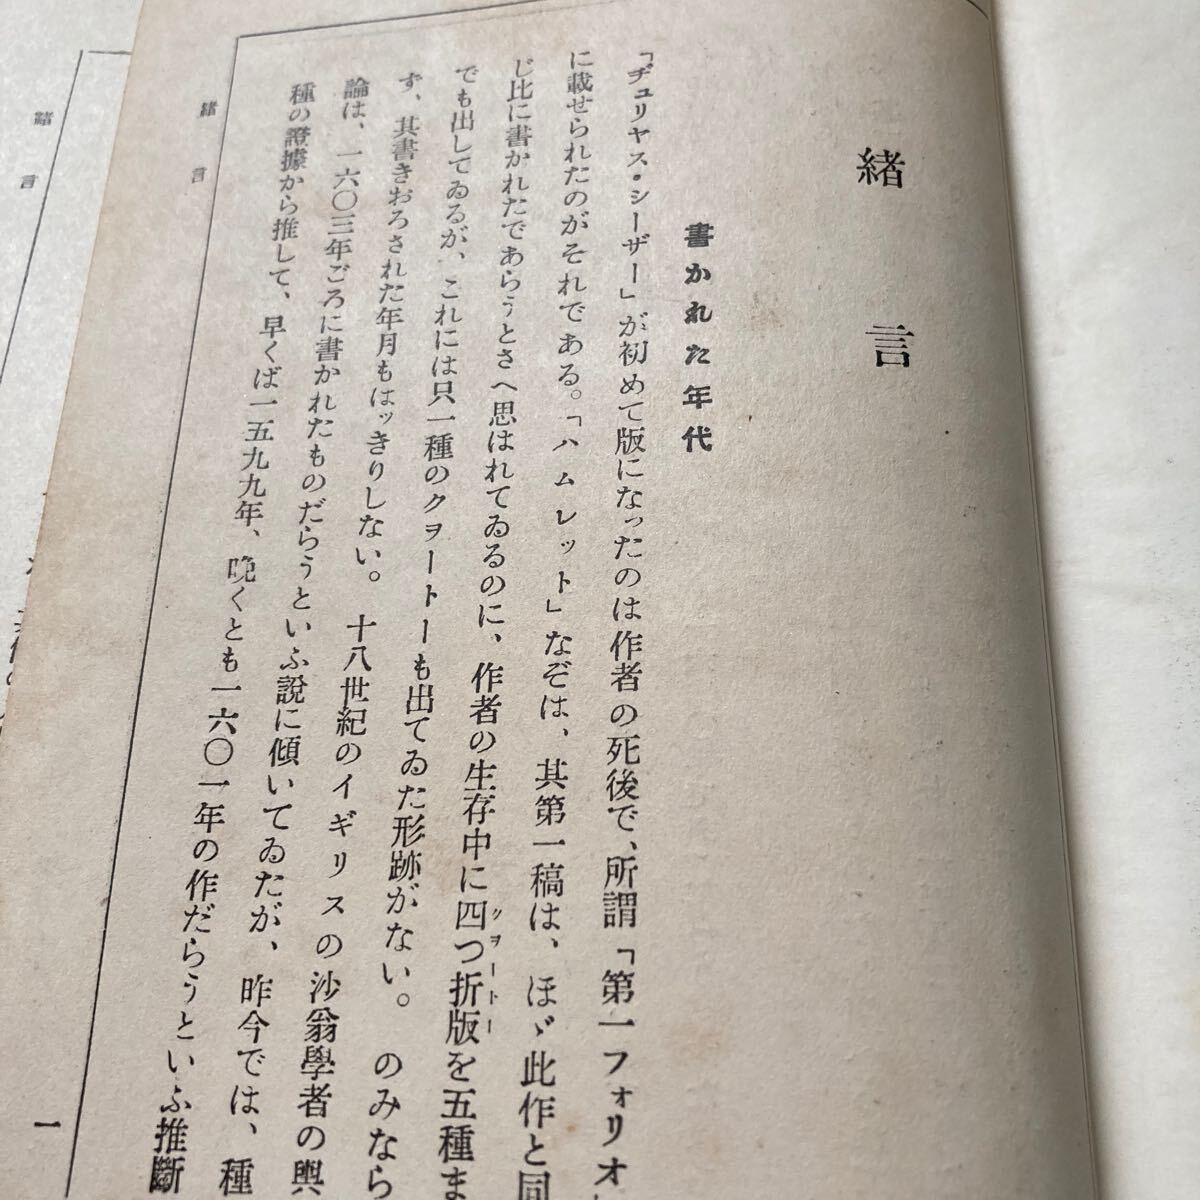 緒言
書かれた年代
「ヂュリヤス・シーザー」が初めて版になったのは作者の死後で、所謂「第一フォリオ」
に載せられたのがそれである。「ハムレット」なぞは、其第一稿は、ほゞ此作と同
じ比に書かれたであらうとさへ思はれてゐるのに、作者の生存中に四つ折版を五種ま
クヲートー
でも出してゐるが、これには只一種のクヲートーも出てゐた形跡がない。のみなら
ず、其書きおろされた年月もはッきりしない。十八世紀のイギリスの沙翁學者の輿
論は、一六〇三年ごろに書かれたものだらうといふ説に傾いてゐたが、昨今では、種
種の證據から推して、早くば一五九九年、晩くとも一六〇一年の作だらうといふ推斷
緒言
一
緒言